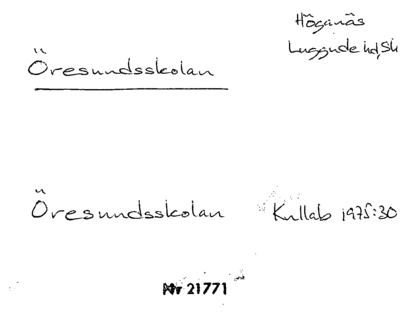 Höganäs
Luggude hd, Sk
Öresundsskolan
Öresundsskolan Kullab 1975:30
Nr 21771